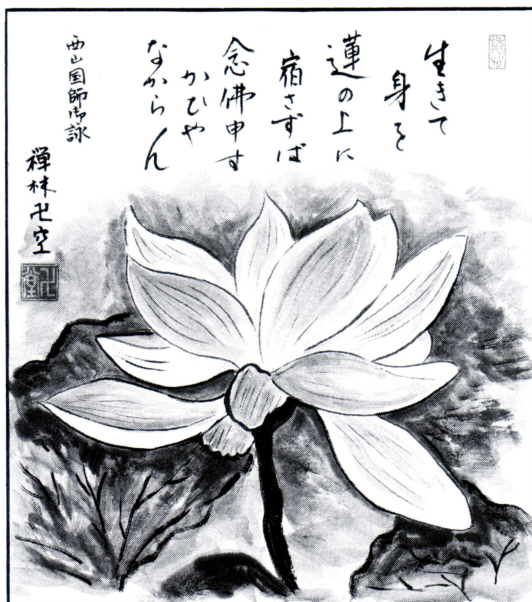 生きて
身を
蓮の上に
宿さずば
念佛申す
かひや
なからん
西山国師御詠
禅林卍空